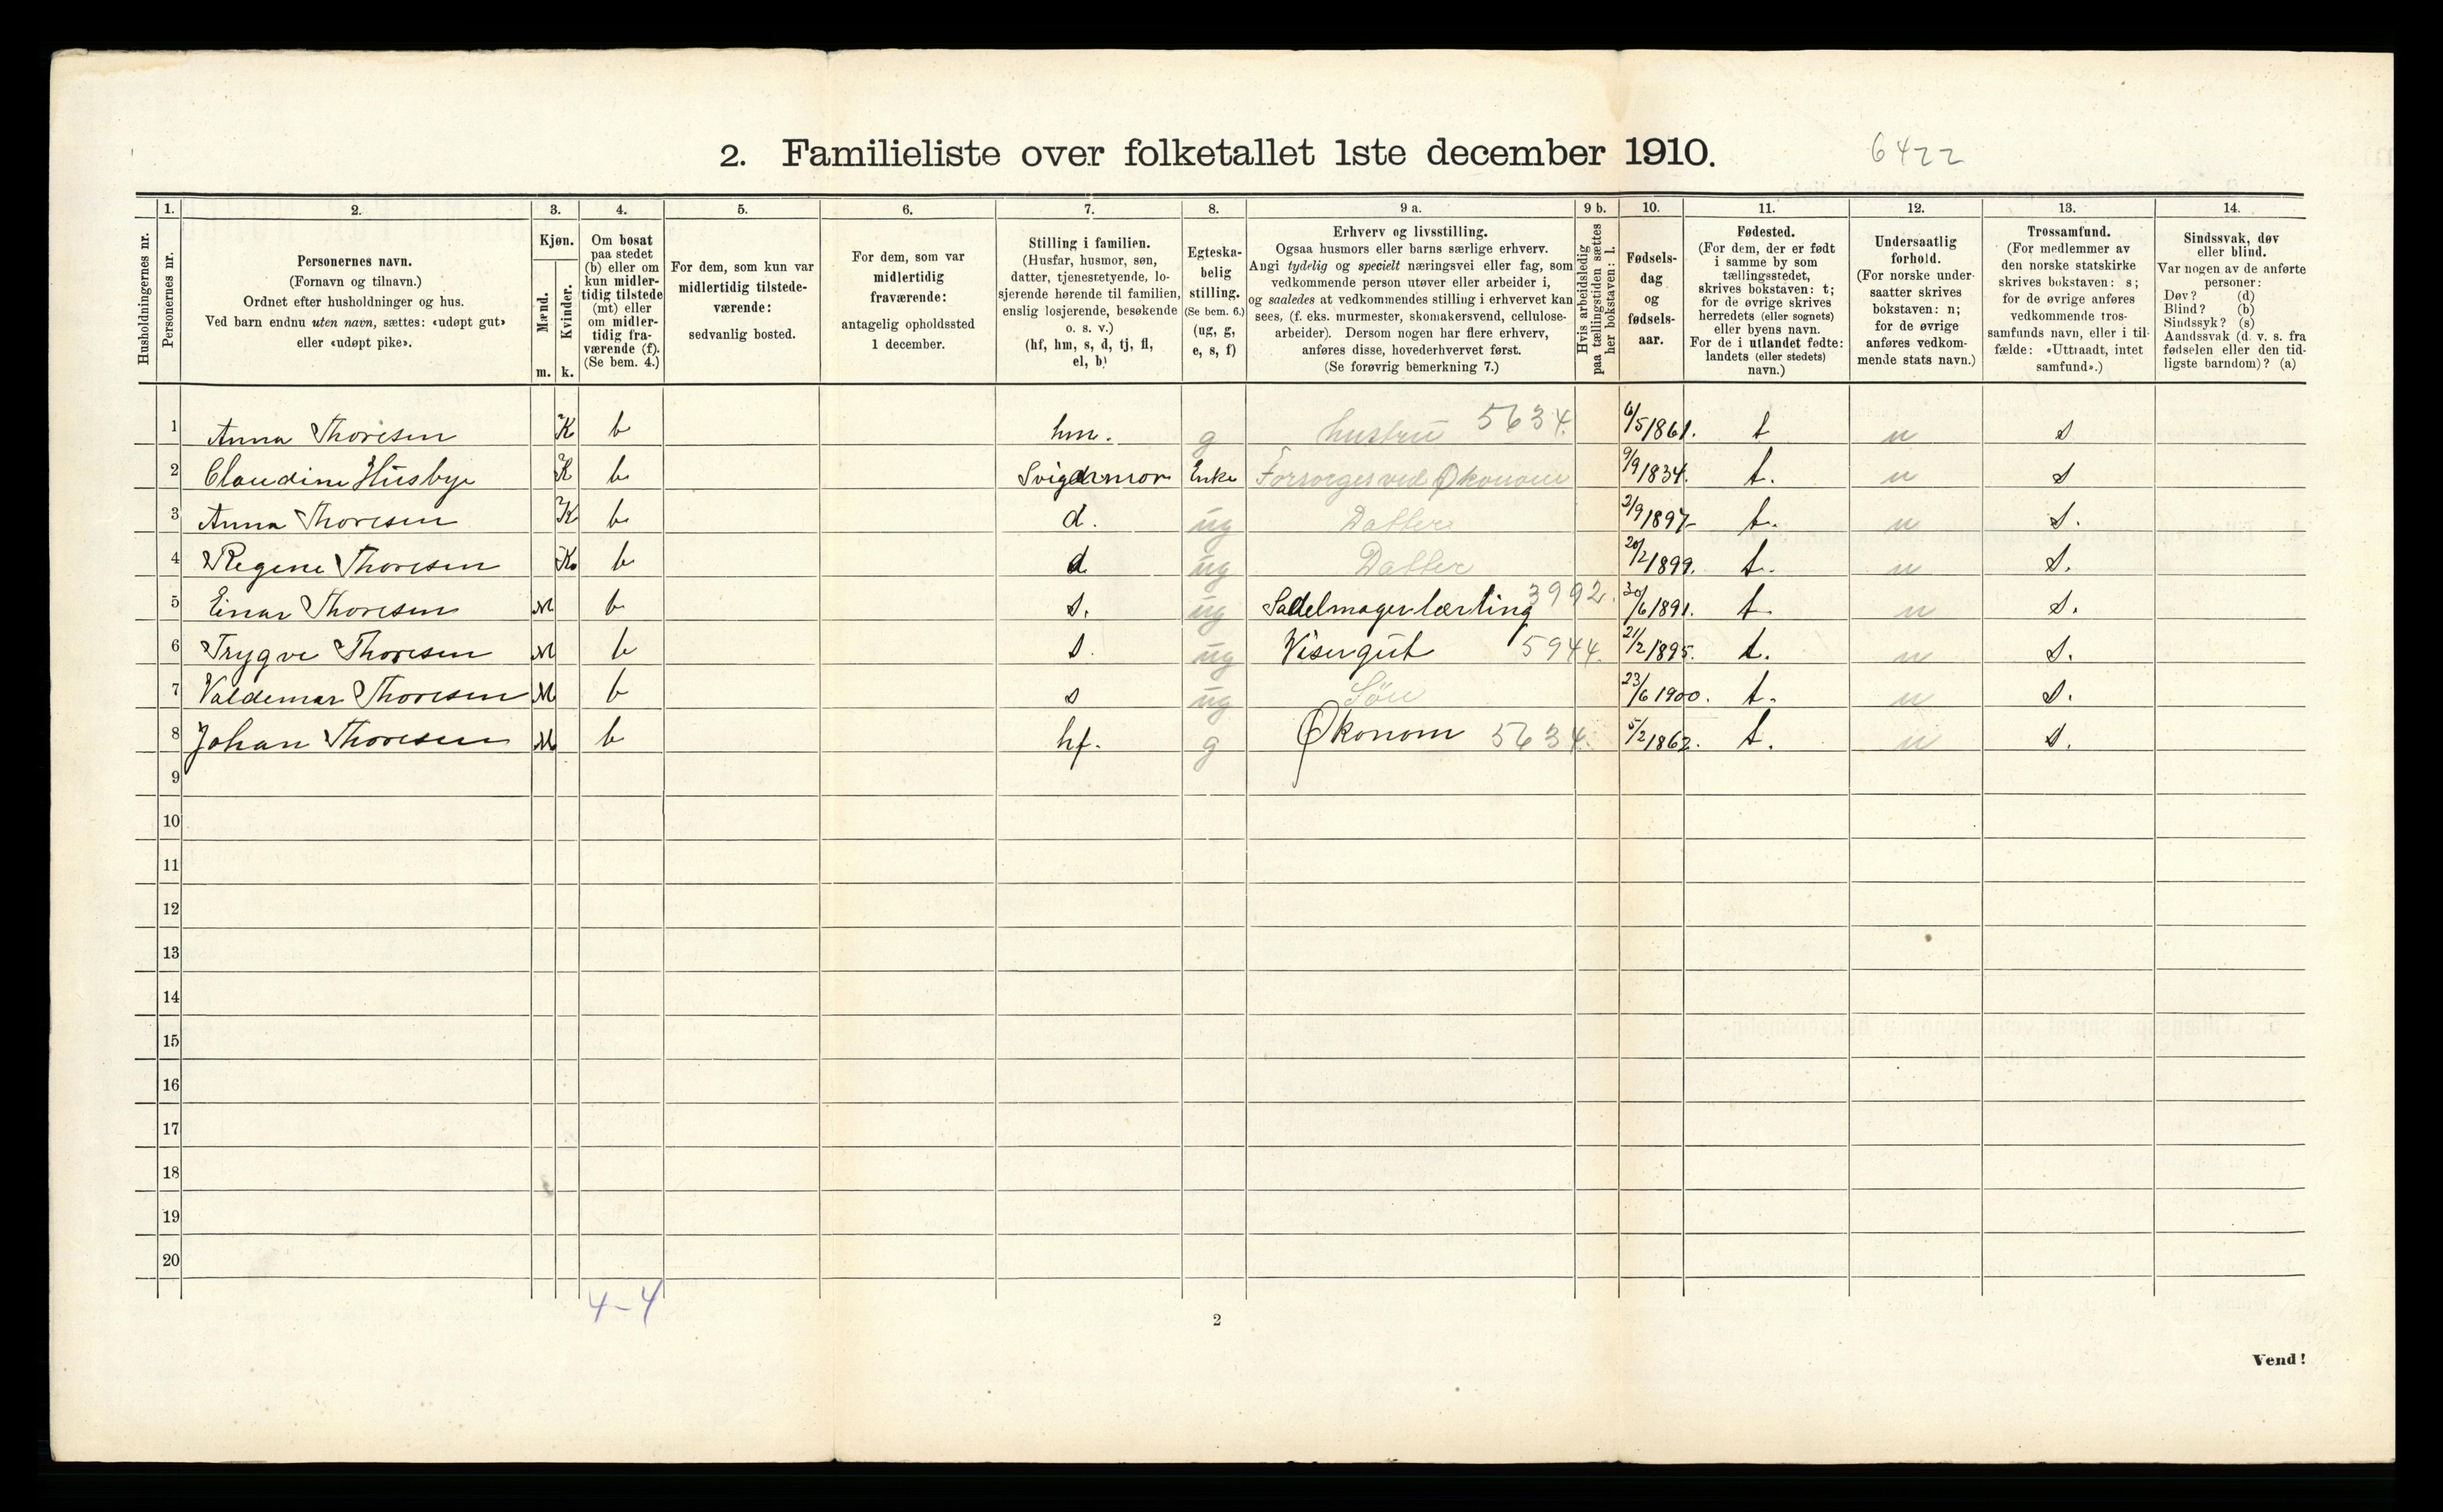 2. Familieliste over folketallet 1ste december 1910. 6422
1. 2. 3. 4. 5. 6. 7. 8. 9 a. 9 b. 10. 11. 12. 13. 14.
Husholdningernes nr.
Personernes nr.
Personernes navn.
(Fornavn og tilnavn.)
Ordnet efter husholdninger og hus.
Ved barn endnu uten navn, sættes: «udøpt gut»
eller «udøpt pike».
Kjøn.
Mænd.
Kvinder.
m. k.
Om bosat
paa stedet
(b) eller om
kun midler-
tidig tilstede
(mt) eller
om midler-
tidig fra-
værende (f).
(Se bem. 4.)
For dem, som kun var
midlertidig tilstede-
værende:
sedvanlig bosted.
For dem, som var
midlertidig
fraværende:
antagelig opholdssted
1 december.
Stilling i familien.
(Husfar, husmor, søn,
datter, tjenestetyende, lo-
sjerende hørende til familien,
enslig losjerende, besøkende
o. s. v.)
(hf, hm, s, d, tj, fl,
el, b)
Egteska-
belig
stilling.
(Se bem. 6.)
(ug, g,
e, s, f)
Erhverv og livsstilling.
Ogsaa husmors eller barns særlige erhverv.
Angi tydelig og specielt næringsvei eller fag, som
vedkommende person utøver eller arbeider i,
og saaledes at vedkommendes stilling i erhvervet kan
sees, (f. eks. murmester, skomakersvend, cellulose-
arbeider). Dersom nogen har flere erhverv,
anføres disse, hovederhvervet først.
(Se forøvrig bemerkning 7.)
Hvis arbeidsledig
paa tællingstiden sættes
her bokstaven: l.
Fødsels-
dag
og
fødsels-
aar.
Fødested.
(For dem, der er født
i samme by som
tællingsstedet,
skrives bokstaven: t;
for de øvrige skrives
herredets (eller sognets)
eller byens navn.
For de i utlandet fødte:
landets (eller stedets)
navn.)
Undersaatlig
forhold.
(For norske under-
saatter skrives
bokstaven: n;
for de øvrige
anføres vedkom-
mende stats navn.)
Trossamfund.
(For medlemmer av
den norske statskirke
skrives bokstaven: s;
for de øvrige anføres
vedkommende tros-
samfunds navn, eller i til-
fælde: «Uttraadt, intet
samfund».)
Sindssvak, døv
eller blind.
Var nogen av de anførte
personer:
Døv? (d)
Blind? (b)
Sindssyk? (s)
Aandssvak (d. v. s. fra
fødselen eller den tid-
ligste barndom)? (a)
1 Anna Thoresen K b hm. g hustru 5634. 6/5 1861. t n s
2 Claudine Husbye K b. Svigermor Enke Forsørges ved Økonom 9/9 1834. t. n s
3 Anna Thoresen K b. d. ug Datter 2/9 1897 t. n s.
4 Regine Thoresen K. b d ug Datter 20/2 1899. t. n s.
5 Einar Thoresen M b s. ug Sadelmagerlærling 3992. 30/6 1891. t. n s.
6 Trygve Thoresen M b s. ug Visergut 5944. 21/2 1895. t. n s.
7 Valdemar Thoresen M b s ug Søn 23/6 1900. t. n s.
8 Johan Thoresen M b hf. g Økonom 5634. 5/2 1862. t. n s.
9
10
11
12
13
14
15
16
17
18
19
20
4-4
2
Vend!